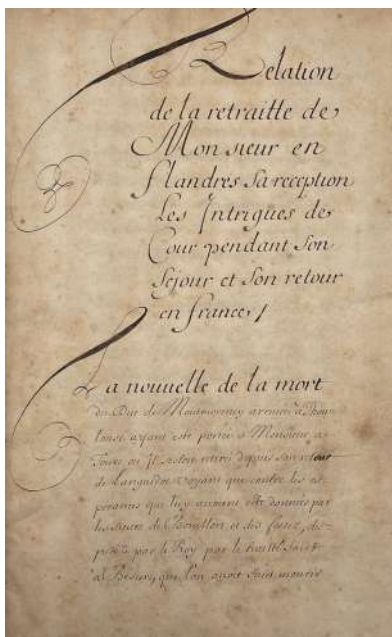 Relation
de la retraitte de
Monsieur en
flandres sa reception
Les Intrigues de
Cour pendant son
Sejour et son retour
en france /
La nouvelle de la mort
du Duc de Monmorency arrivée à Thou-
louse ayant esté portée a Monsieur a
Tours ou Il estoit retiré depuis son retour
de Languedoc voyant que contre les es-
perances que luy avoient esté données par
les Sieurs de Boüillon, et des fossez, de-
par le Roy par le traitté faict
a Besiers, que l'on avoit faict mourir